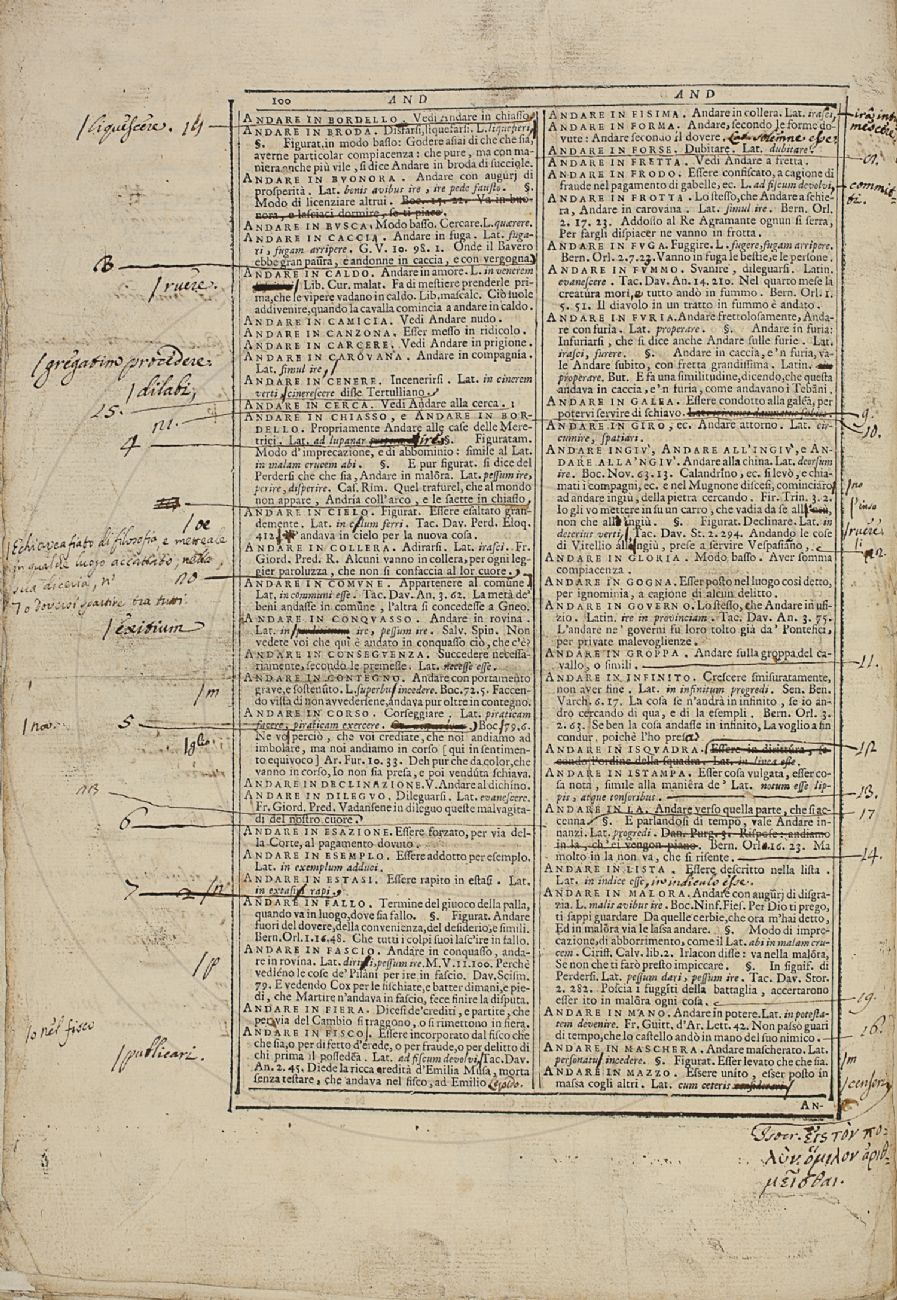 100 AND
ANDARE IN BORDELLO. Vedi Andare in chiasso
ANDARE IN BRODA. Disfarsi, liquefarsi. L.
§. Figurat. in modo basso: Godere assai di che che sia,
averne particolar compiacenza: che pure, ma con ma-
niera anche più vile, si dice Andare in broda di succiole.
ANDARE IN BUONORA. Andare con augurj di
prosperità. Lat. bonis avibus ire, ire pede fausto. §.
Modo di licenziare altrui. Boc. 15. 22. Va in buo-
nora, e lasciaci dormire, se ti piace.
ANDARE IN BUSCA. Modo basso. Cercare. L. quærere.
ANDARE IN CACCIA. Andare in fuga. Lat. fuga-
ri, fugam arripere. G. V. 10. 98. 1. Onde il Bavero
ebbe gran paura, e andonne in caccia, e con vergogna
ANDARE IN CALDO. Andare in amore. L. in venerem
Lib. Cur. malat. Fa di mestiere prenderle pri-
ma, che le vipere vadano in caldo. Lib. mascalc. Ciò suole
addivenire, quando la cavalla comincia a andare in caldo.
ANDARE IN CAMICIA. Vedi Andare nudo.
ANDARE IN CANZONA. Esser messo in ridicolo.
ANDARE IN CARCERE. Vedi Andare in prigione.
ANDARE IN CAROVANA. Andare in compagnia.
Lat. simul ire,
ANDARE IN CENERE. Incenerirsi. Lat. in cinerem
verti, cinerescere disse Tertulliano.
ANDARE IN CERCA. Vedi Andare alla cerca.
ANDARE IN CHIASSO, e ANDARE IN BOR-
DELLO. Propriamente Andare alle case delle Mere-
trici. Lat. ad lupanar ire §. Figuratam.
Modo d'imprecazione, e di abbominio: simile al Lat.
in malam crucem abi. §. E pur figurat. si dice del
Perdersi che che sia, Andare in malóra. Lat. pessum ire,
perire, disperire. Cas. Rim. Quel trafurel, che al mondo
non appare, Andria coll'arco, e le saette in chiasso,
ANDARE IN CIELO. Figurat. Essere esaltato gran-
demente. Lat. in cœlum ferri. Tac. Dav. Perd. Eloq.
412. E' andava in cielo per la nuova cosa.
ANDARE IN COLLERA. Adirarsi. Lat. irasci. Fr.
Giord. Pred. R. Alcuni vanno in collera, per ogni leg-
gier paroluzza, che non si confaccia al lor cuore.
ANDARE IN COMUNE. Appartenere al comune
Lat. in communi esse. Tac. Dav. An. 3. 62. La metà de'
beni andasse in comune, l'altra si concedesse a Gneo.
ANDARE IN CONQUASSO. Andare in rovina.
Lat. in ire, pessum ire. Salv. Spin. Non
vedete voi che quì è andato in conquasso ciò, che c'è?
ANDARE IN CONSEGUENZA. Succedere necessa-
riamente, secondo le premesse. Lat. necesse esse.
ANDARE IN CONTEGNO. Andare con portamento
grave, e sostenuto. L. superbu incedere. Boc. 72. 5. Faccen-
do vista di non avvedersene, andava pur oltre in contegno.
ANDARE IN CORSO. Corseggiare. Lat. piraticam
facere, piraticam exercere. Boc. 79. 6.
Ne vo' perciò, che voi crediate, che noi andiamo ad
imbolare, ma noi andiamo in corso [ qui in sentimen-
to equivoco] Ar. Fur. 10. 33. Deh pur che da color, che
vanno in corso, Io non sia presa, e poi venduta schiava.
ANDARE IN DECLINAZIONE. V. Andare al dichino.
ANDARE IN DILEGUO. Dileguarsi. Lat. evanescere.
Fr. Giord. Pred. Vadansene in dileguo queste malvagita-
di del nostro cuore.
ANDARE IN ESAZIONE. Essere forzato, per via del-
la Corte, al pagamento dovuto.
ANDARE IN ESEMPLO. Essere addotto per esemplo.
Lat. in exemplum adduci.
ANDARE IN ESTASI. Essere rapito in estasi. Lat.
in extasi rapi.
ANDARE IN FALLO. Termine del giuoco della palla,
quando va in luogo, dove sia fallo. §. Figurat. Andare
fuori del dovere, della convenienza, del desiderio, e simili.
Bern. Orl. 1. 16. 48. Che tutti i colpi suoi lasc'ire in fallo.
ANDARE IN FASCIO. Andare in conquasso, anda-
re in rovina. Lat. diri i, pessum ire. M. V. 11. 100. Perchè
vedièno le cose de' Pisàni per ire in fascio. Dav. Scism.
79. E vedendo Cox per le fischiate, e batter di mani, e pie-
di, che Martire n'andava in fascio, fece finire la disputa.
ANDARE IN FIERA. Dicesi de' crediti, e partite, che
per via del Cambio si traggono, o si rimettono in fiera.
ANDARE IN FISCO. Essere incorporato dal fisco chè
che sia, o per difetto d'erede, o per fraude, o per delitto di
chi prima il possedéa. Lat. ad fiscum devolvi, Tac. Dav.
An. 2. 45. Diede la ricca eredità d'Emilia Musa, morta
senza testare, che andava nel fisco, ad Emilio Lepido.
AND
ANDARE IN FISIMA. Andare in collera. Lat. irasci,
ANDARE IN FORMA. Andare, secondo le forme do-
vute: Andare secondo il dovere.
ANDARE IN FORSE. Dubitare. Lat. dubitare.
ANDARE IN FRETTA. Vedi Andare a fretta.
ANDARE IN FRODO. Essere confiscato, a cagione di
fraude nel pagamento di gabelle, ec. L. ad fiscum devolvi,
ANDARE IN FROTTA. Lo stesso, che Andare a schie-
ra, Andare in carovana. Lat. simul ire. Bern. Orl.
2. 17. 23. Addosso al Re Agramante ognun si serra,
Per fargli dispiacer ne vanno in frotta.
ANDARE IN FUGA. Fuggire. L. fugere, fugam arripere.
Bern. Orl. 2. 7. 23. Vanno in fuga le bestie, e le persone.
ANDARE IN FUMMO. Svanire, dileguarsi. Latin.
evanescere. Tac. Dav. An. 14. 210. Nel quarto mese la
creatura mori, e tutto andò in fummo. Bern. Orl. 1.
5. 51. Il diavolo in un tratto in fummo è andato.
ANDARE IN FURIA. Andare frettolosamente, Anda-
re con furia. Lat. properare. §. Andare in furia:
Infuriarsi, che si dice anche Andare sulle furie. Lat.
irasci, furere. §. Andare in caccia, e 'n furia, va-
le Andare subito, con fretta grandissima. Latin.
properare. But. E fa una similitudine, dicendo, che questa
andava in caccia, e 'n furia, come andavano i Tebâni.
ANDARE IN GALEA. Essere condotto alla galéa, per
potervi servire di schiavo.
ANDARE IN GIRO, ec. Andare attorno. Lat. cir-
cumire, spatiari.
ANDARE INGIÙ, ANDARE ALL'INGIÙ, e AN-
DARE ALLA 'NGIÙ. Andare alla china. Lat. deorsum
ire. Boc. Nov. 63. 13. Calandrino, ec. si levò, e chia-
mati i compagni, ec. e nel Mugnone discesi, cominciaro
ad andare ingiu, della pietra cercando. Fir. Trin. 3. 2.
Io gli vo mettere in su un carro, che vada da se all
non che all ingiù. §. Figurat. Declinare. Lat. in
deterius verti, Tac. Dav. St. 2. 294. Andando le cose
di Vitellio all ingiù, prese a servire Vespasiano,
ANDARE IN GLORIA. Modo basso. Aver somma
compiacenza.
ANDARE IN GOGNA. Esser posto nel luogo così detto,
per ignominia, a cagione di alcun delitto.
ANDARE IN GOVERNO. Lo stesso, che Andare in ufi-
zio. Latin. ire in provinciam. Tac. Dav. An. 3. 75.
L'andare ne' governi fu loro tolto già da' Pontefici,
per private malevoglienze.
ANDARE IN GROPPA. Andare sulla groppa del ca-
vallo, o simili.
ANDARE IN INFINITO. Crescere smisuratamente,
non aver fine. Lat. in infinitum progredi. Sen. Ben.
Varch. 6. 17. La cosa se n'andrà in infinito, se io an-
drò cercando di qua, e di la esempli. Bern. Orl. 3.
2. 63. Se ben la cosa andasse in infinito, La voglio a fin
condur, poichè l'ho presa.
ANDARE IN ISQUADRA. Essere in dirittura, se-
condo l'ordine della squadra. Lat. in linea esse.
ANDARE IN ISTAMPA. Esser cosa vulgata, esser co-
sa nota, simile alla manièra de' Lat. notum esse lip-
pis, atque tonsoribus.
ANDARE IN LA. Andare verso quella parte, che si ac-
cenna. §. E parlandosi di tempo, vale Andare in-
nanzi. Lat. progredi. Dan. Purg. 3. Rispose: andiamo
in la, ch'ei vengon piano. Bern. Orl. 2. 16. 23. Ma
molto in la non va, che si risente.
ANDARE IN LISTA. Essere descritto nella lista.
Lat. in indice esse, in indiculo esse.
ANDARE IN MALORA. Andare con augùrj di disgra-
zia. L. malis avibus ire. Boc. Ninf. Fies. Per Dio ti prego,
ti sappi guardare Da quelle cerbie, che ora m'hai detto,
Ed in malóra via le lassa andare. §. Modo di impre-
cazione, di abborrimento, come il Lat. abi in malam cru-
cem. Cirist. Calv. lib. 2. Irlacon disse: va nella malóra,
Se non che ti farò presto impiccare. §. In signif. di
Perdersi. Lat. pessum dari, pessum ire. Tac. Dav. Stor.
2. 282. Poscia i fuggiti della battaglia, accertarono
esser ito in malóra ogni cosa.
ANDARE IN MANO. Andare in potere. Lat. in potesta-
tem devenire. Fr. Guitt. d'Ar. Lett. 42. Non passò guari
di tempo, che lo castello andò in mano del suo nimico.
ANDARE IN MASCHERA. Andare mascherato. Lat.
personatus incedere. §. Figurat. Esser levato che che sia.
ANDARE IN MAZZO. Essere unito, esser posto in
massa cogli altri. Lat. cum ceteris
AN-
liquescere. 14
8
ruere
gregatim procedere
dilabi,
25.
4
exitium
m
5
6
7
p
nel fisco
publicari.
9.
10.
ruere
11.
12
13.
17
14.
19.
16.
m
censeri
Isocr. εἰς τὸν πο-
λὺν ὅμιλον ἀριθ-
μεῖσθαι.